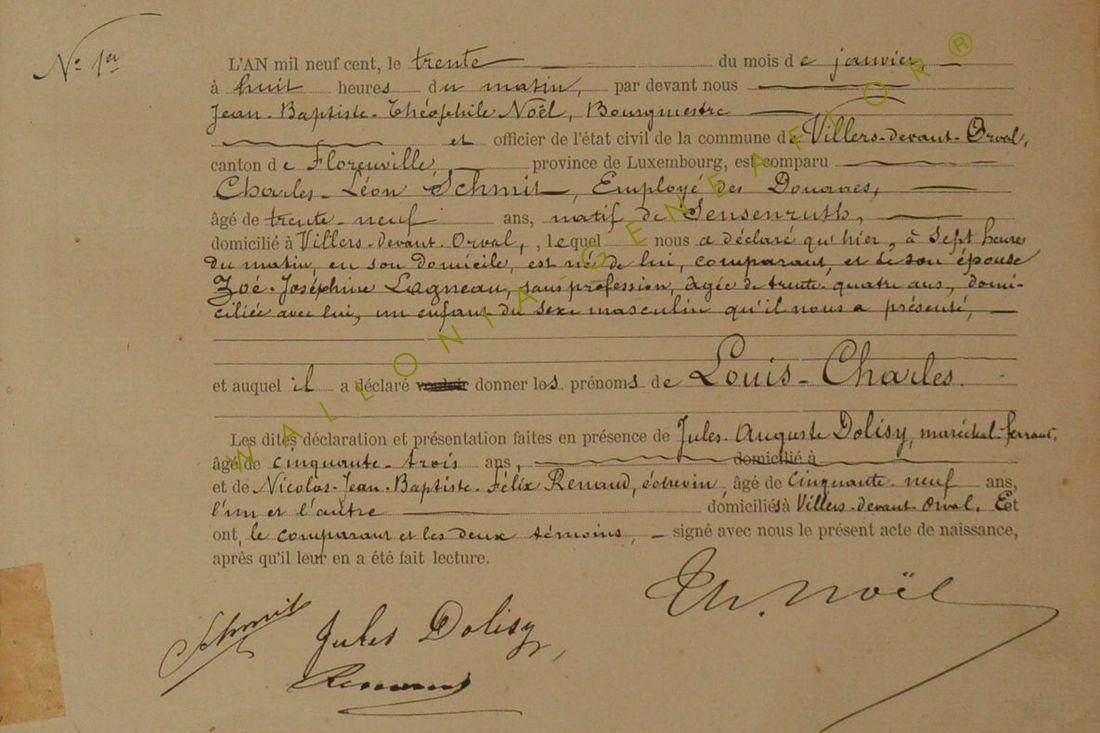 N° 1er
L'AN mil neuf cent, le trente du mois de janvier,
à huit heures du matin, par devant nous
Jean-Baptiste-Théophile Noël, Bourgmestre
et officier de l'état civil de la commune de Villers-devant-Orval,
canton de Florenville, province de Luxembourg, est comparu
Charles-Léon Schmit, Employé des Douanes,
âgé de trente-neuf ans, natif de Sensenruth,
domicilié à Villers-devant-Orval, , lequel nous a déclaré qu'hier, à sept heures
du matin, en son domicile, est né de lui, comparant, et de son épouse
Zoé-Joséphine Lagneau, sans profession, âgée de trente-quatre ans, domi-
ciliée avec lui, un enfant du sexe masculin qu'il nous a présenté,
et auquel il a déclaré vouloir donner les prénoms de Louis-Charles.
Les dites déclaration et présentation faites en présence de Jules-Auguste Dolisy, maréchal-ferrant,
âgé de cinquante-trois ans, domicilié à
et de Nicolas-Jean-Baptiste-Félix Renaud, échevin, âgé de cinquante-neuf ans,
l'un et l'autre domiciliés à Villers-devant-Orval. Et
ont, le comparant et les deux témoins, signé avec nous le présent acte de naissance,
après qu'il leur en a été fait lecture.
Th. Noël
Schmit Jules Dolisy,
Renaud
WALLONIA GENEAFOR ®